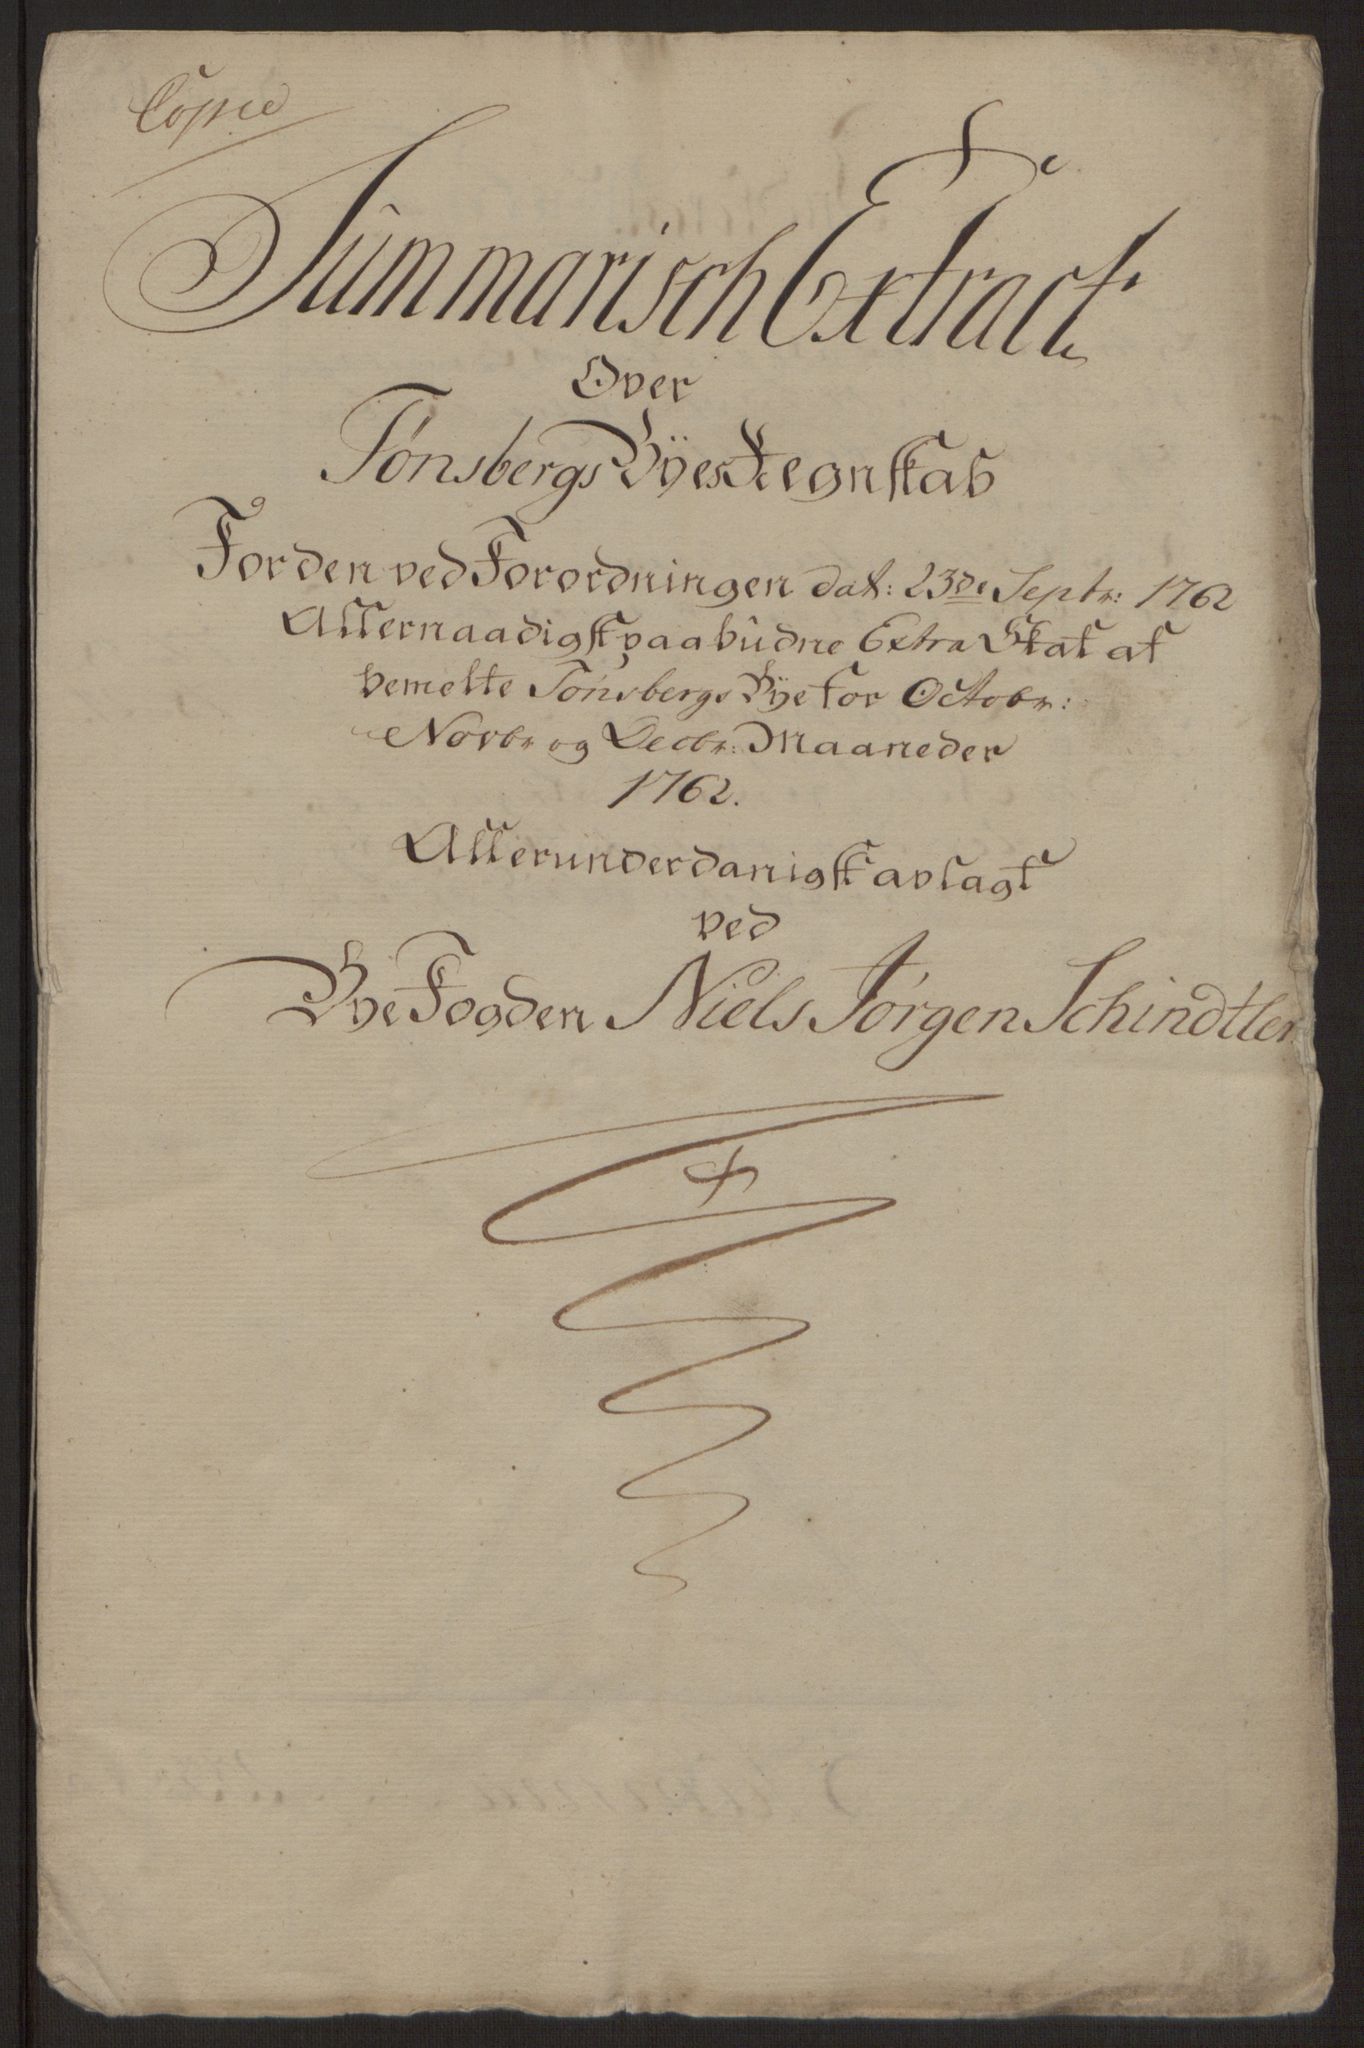 Copie
Summarisch Extract
Over
Tønsbergs Byes Regnskab
For den ved Forordningen dat: 23de Septr: 1762
Allernaadigst paabudne Extra Skat af
bemelte Tønsbergs Bye for Octobr:
Novbr og Decbr: Maaneder
1762.
Allerunderdanigst avlagt
ved
Bye Fogden Niels Jørgen Schindtler